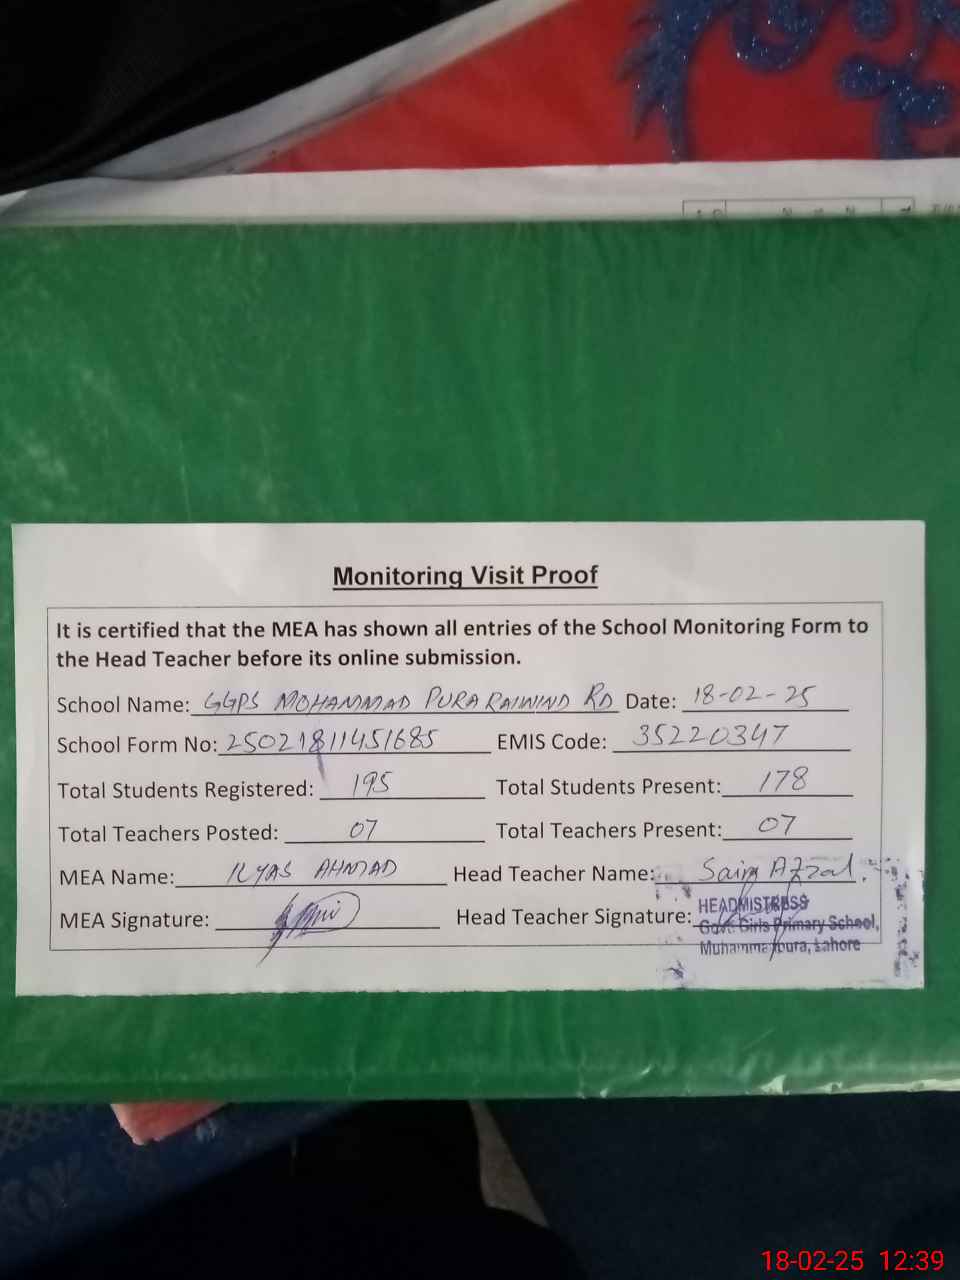 Monitoring Visit Proof
It is certified that the MEA has shown all entries of the School Monitoring Form to
the Head Teacher before its online submission.
School Name: GGPS MOHAMMAD PURA RAIWIND RD Date: 18-02-25
School Form No: 25021811451685 EMIS Code: 35220347
Total Students Registered: 195 Total Students Present: 178
Total Teachers Posted: 07 Total Teachers Present: 07
MEA Name: ILYAS AHMAD Head Teacher Name: Saira Afzal.
MEA Signature: Head Teacher Signature:
HEADMISTRESS
Govt. Girls Primary School,
Muhammadpura, Lahore
18-02-25 12:39